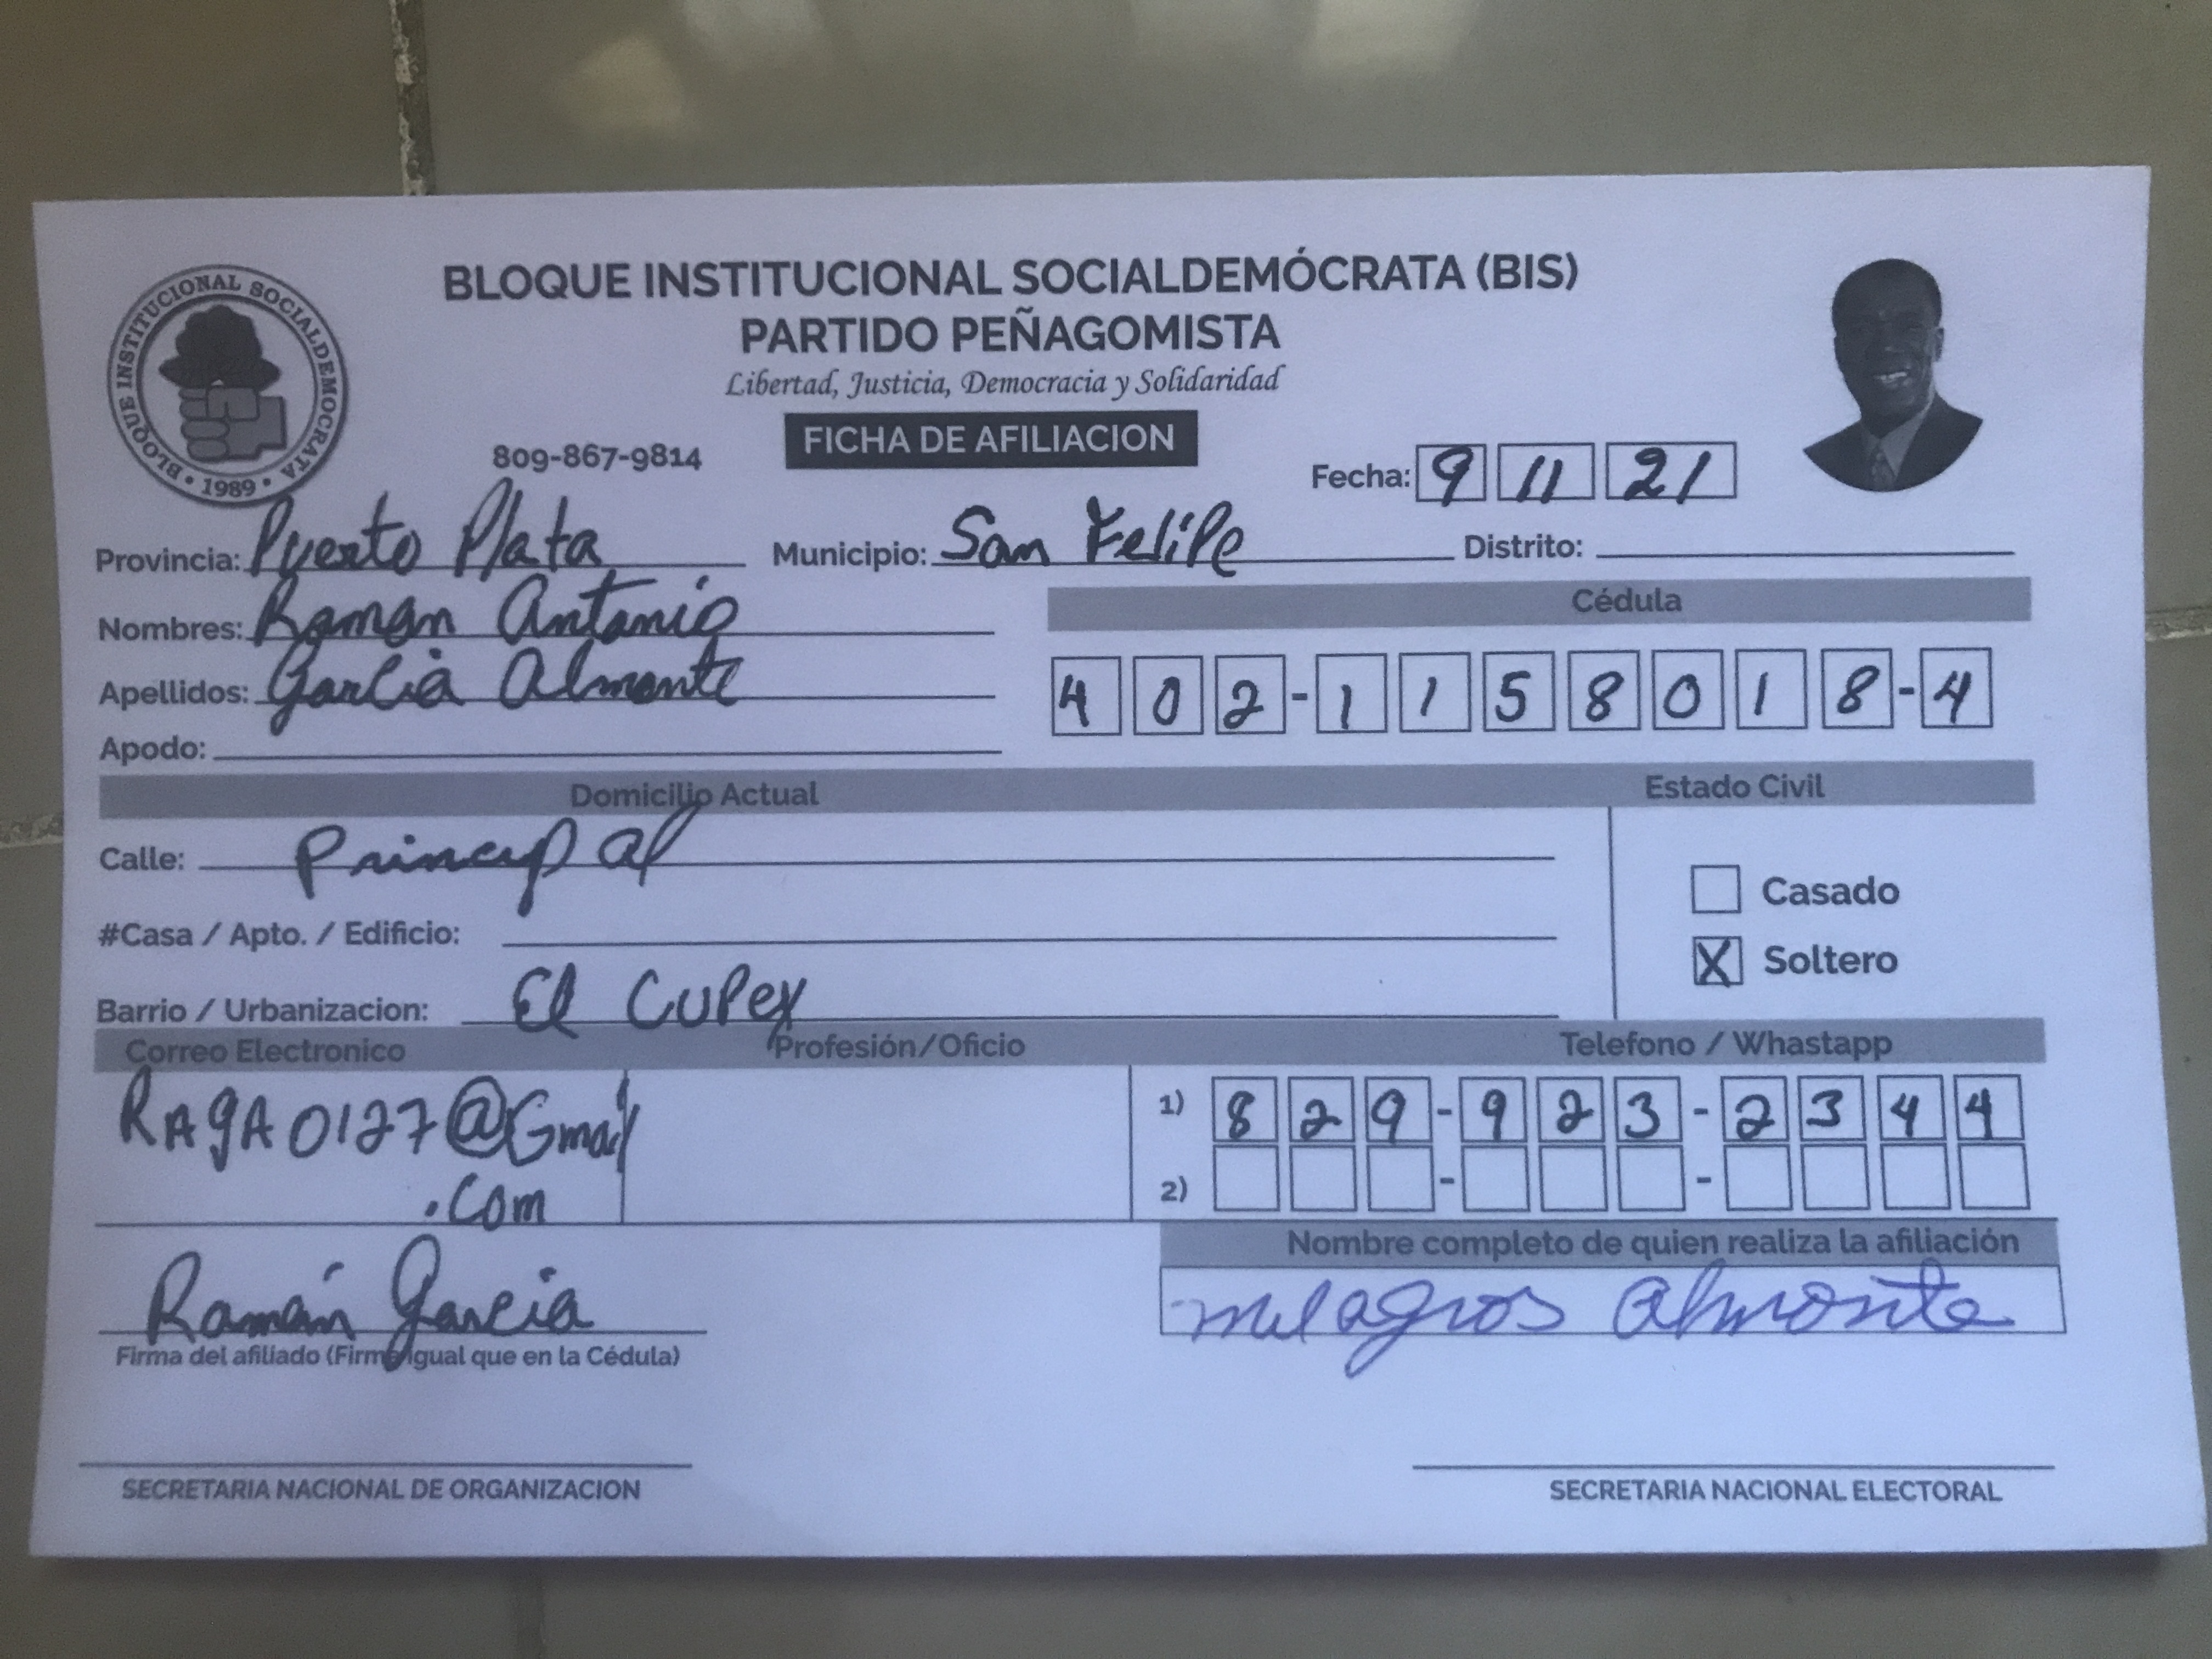 BLOQUE INSTITUCIONAL SOCIALDEMÓCRATA • 1989 •
BLOQUE INSTITUCIONAL SOCIALDEMÓCRATA (BIS)
PARTIDO PEÑAGOMISTA
Libertad, Justicia, Democracia y Solidaridad
809-867-9814 FICHA DE AFILIACION
Fecha: 9 11 21
Provincia: Puerto Plata Municipio: San Felipe Distrito:
Cédula
Nombres: Ramon Antonio
Apellidos: Garcia Almonte 402-1158018-4
Apodo:
Domicilio Actual Estado Civil
Calle: Principal
Casado
#Casa / Apto. / Edificio:
X Soltero
Barrio / Urbanizacion: El Cupey
Correo Electronico Profesión/Oficio Telefono / Whastapp
RAgA0127@Gmail 1) 829-923-2344
.Com 2) - -
Nombre completo de quien realiza la afiliación
Ramón Garcia milagros Almonte
Firma del afiliado (Firma igual que en la Cédula)
SECRETARIA NACIONAL DE ORGANIZACION SECRETARIA NACIONAL ELECTORAL